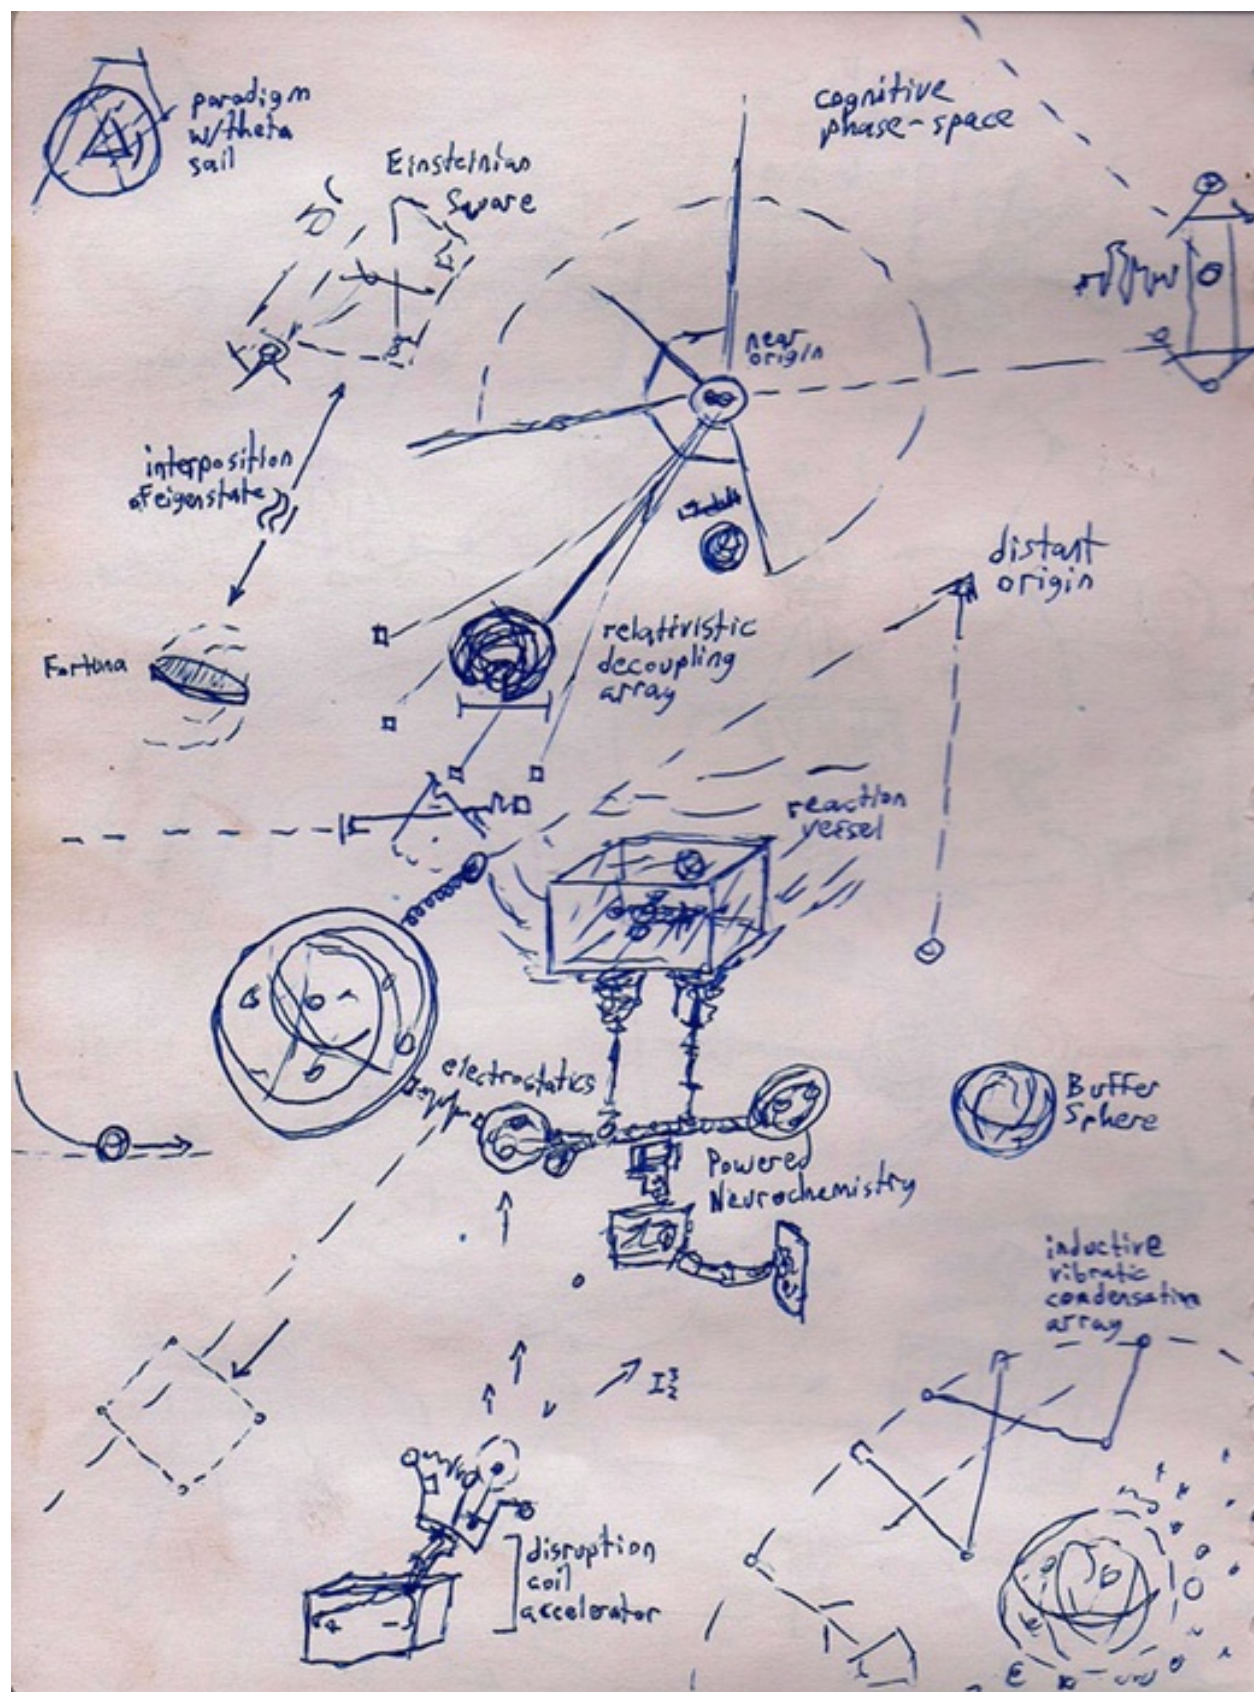 paradigm
w/theta
sail
Einsteinian
Square
cognitive
phase-space
near
origin
interposition
of eigenstate
distant
origin
Fortuna
relativistic
decoupling
array
reaction
vessel
electrostatics
Buffer
Sphere
Powered
Neurochemistry
inductive
vibratic
condensative
array
disruption
coil
accelerator